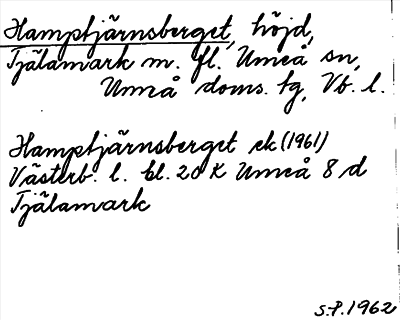 Hamptjärnsberget, höjd,
Tjälamark m. fl. Umeå sn,
Umeå doms. tg, Vb. l.
Hamptjärnsberget ek (1961)
Västerb. l. bl. 20 K Umeå 8 d
Tjälamark
S.P. 1962